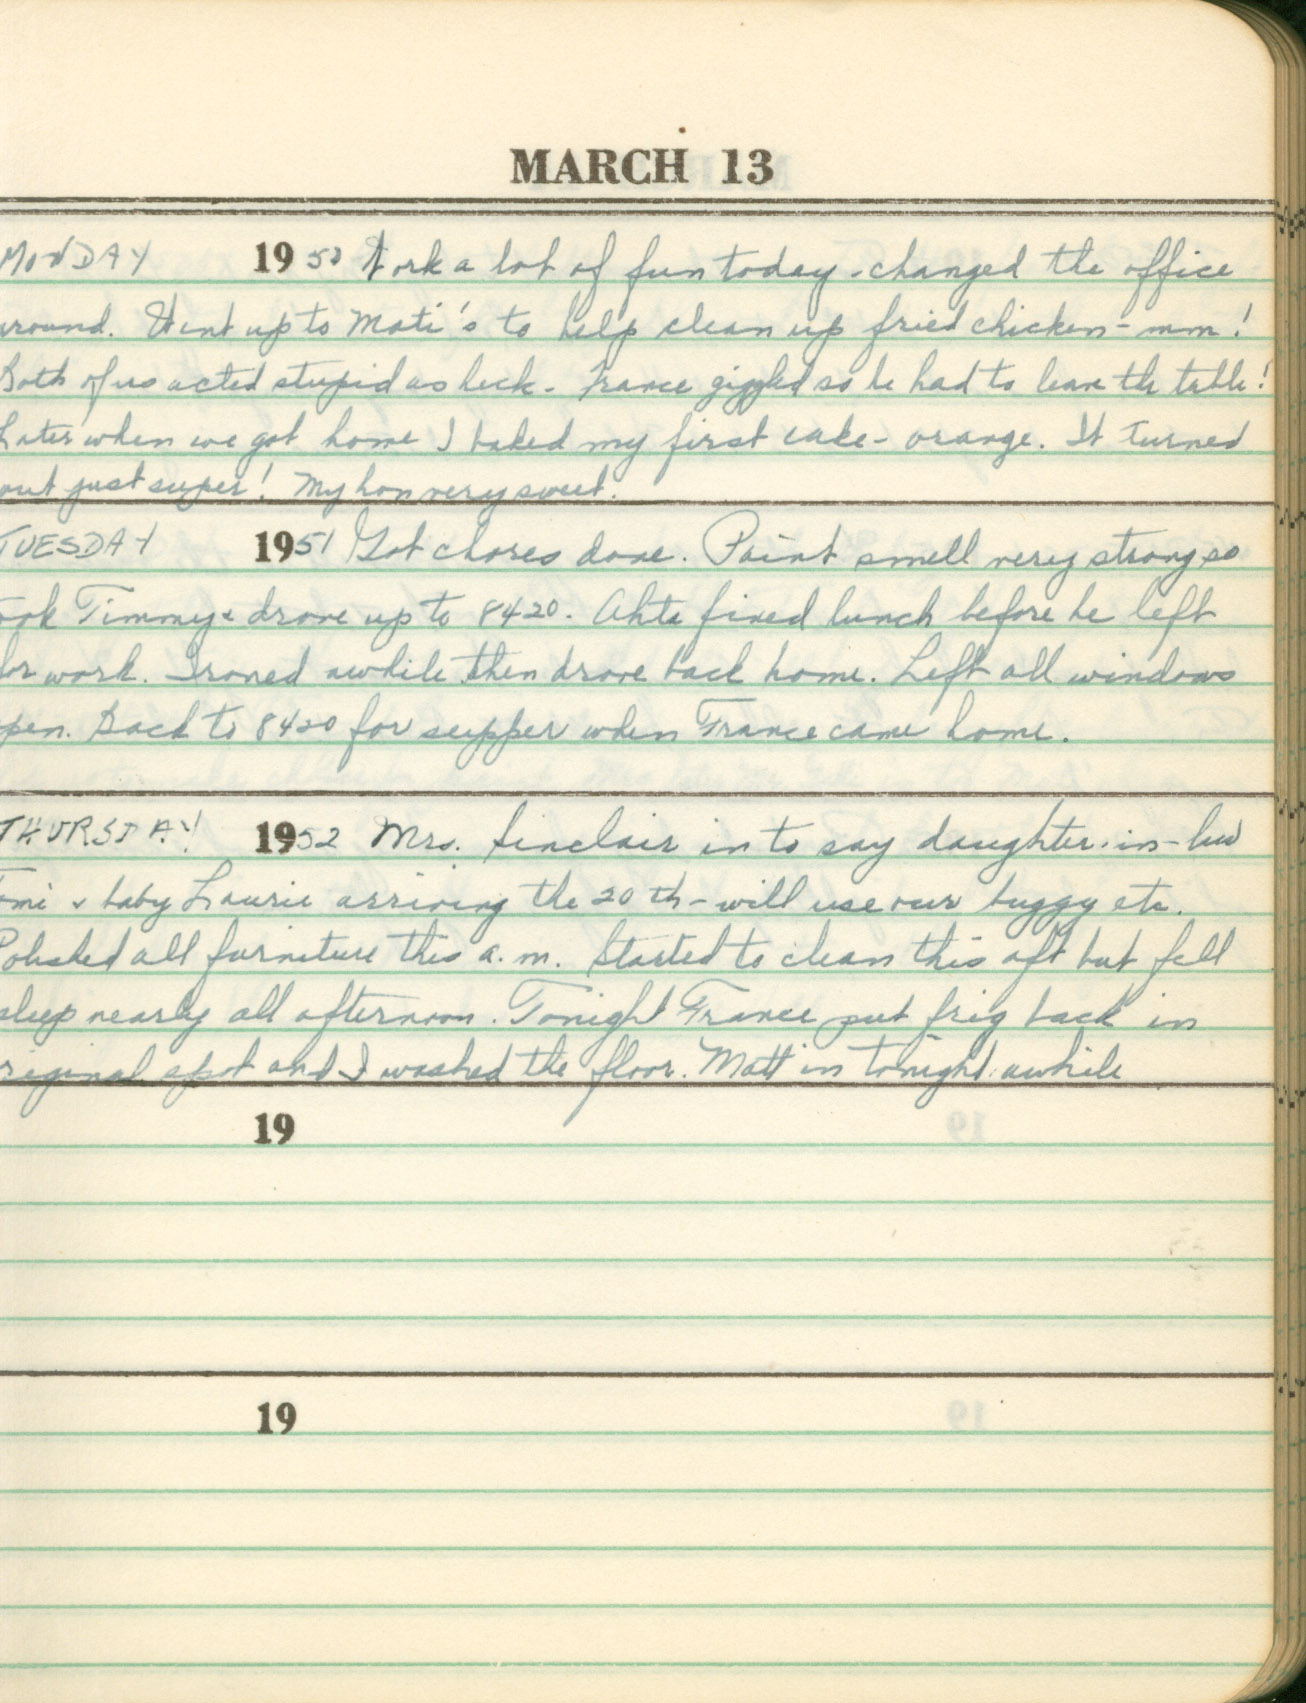 MARCH 13
MONDAY 1950 Work a lot of fun today - changed the office
around. Went up to Mati's to help clean up fried chicken - mm!
Both of us acted stupid as heck - France giggled so he had to leave the table!
Later when we got home I baked my first cake - orange. It turned
out just super! My hon very sweet.
TUESDAY 1951 Got chores done. Paint smell very strong so
ook Timmy & drove up to 8420. Ahta fixed lunch before he left
for work. Ironed awhile then drove back home. Left all windows
pen. Back to 8420 for supper when France came home.
THURSDAY 1952 Mrs. Sinclair in to say daughter-in-law
& baby Laurie arriving the 20th - will use our buggy etc.
Polished all furniture this a.m. Started to clean this aft but fell
sleep nearly all afternoon. Tonight France put frig back in
riginal spot and I washed the floor. Matt in tonight awhile
19
19